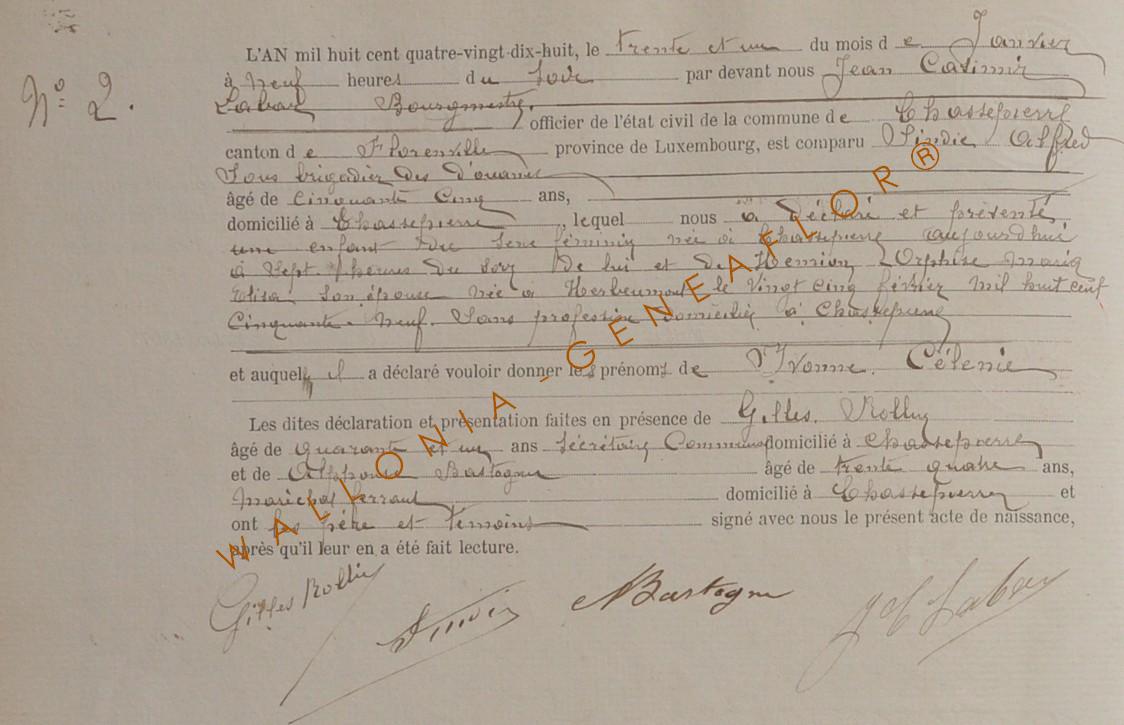 N° 2.
L'AN mil huit cent quatre-vingt-dix-huit, le trente et un du mois d e Janvier
à neuf heures du soir par devant nous Jean Casimir
Labar Bourgmestre,
officier de l'état civil de la commune de Chassepierre
canton d e Florenville province de Luxembourg, est comparu Alfred
Sous brigadier des Douanes
âgé de Cinquante Cinq ans,
domicilié à Chassepierre, lequel nous a Déclaré et présenté
une enfant du sexe féminin née à Chassepierre aujourd'hui
à sept heures du soir de lui et de Henrion Orphise Maria
Elisa son épouse née à Herbeumont le vingt cinq février mil huit cent
Cinquante-neuf. Sans profession domiciliée à Chassepierre
et auquel il a déclaré vouloir donner les prénoms de Yvonne. Célenie
Les dites déclaration et présentation faites en présence de Gilles. Rollin
âgé de quarante et un ans Sécrétaire Communal domicilié à Chassepierre
et de Alphonse Bastogne âgé de trente quatre ans,
Maréchal ferrant domicilié à Chassepierre et
ont les père et témoins signé avec nous le présent acte de naissance,
après qu'il leur en a été fait lecture.
Gilles Rollin ABastogne JC Labar
WALLONIA-GENEAFLOR®